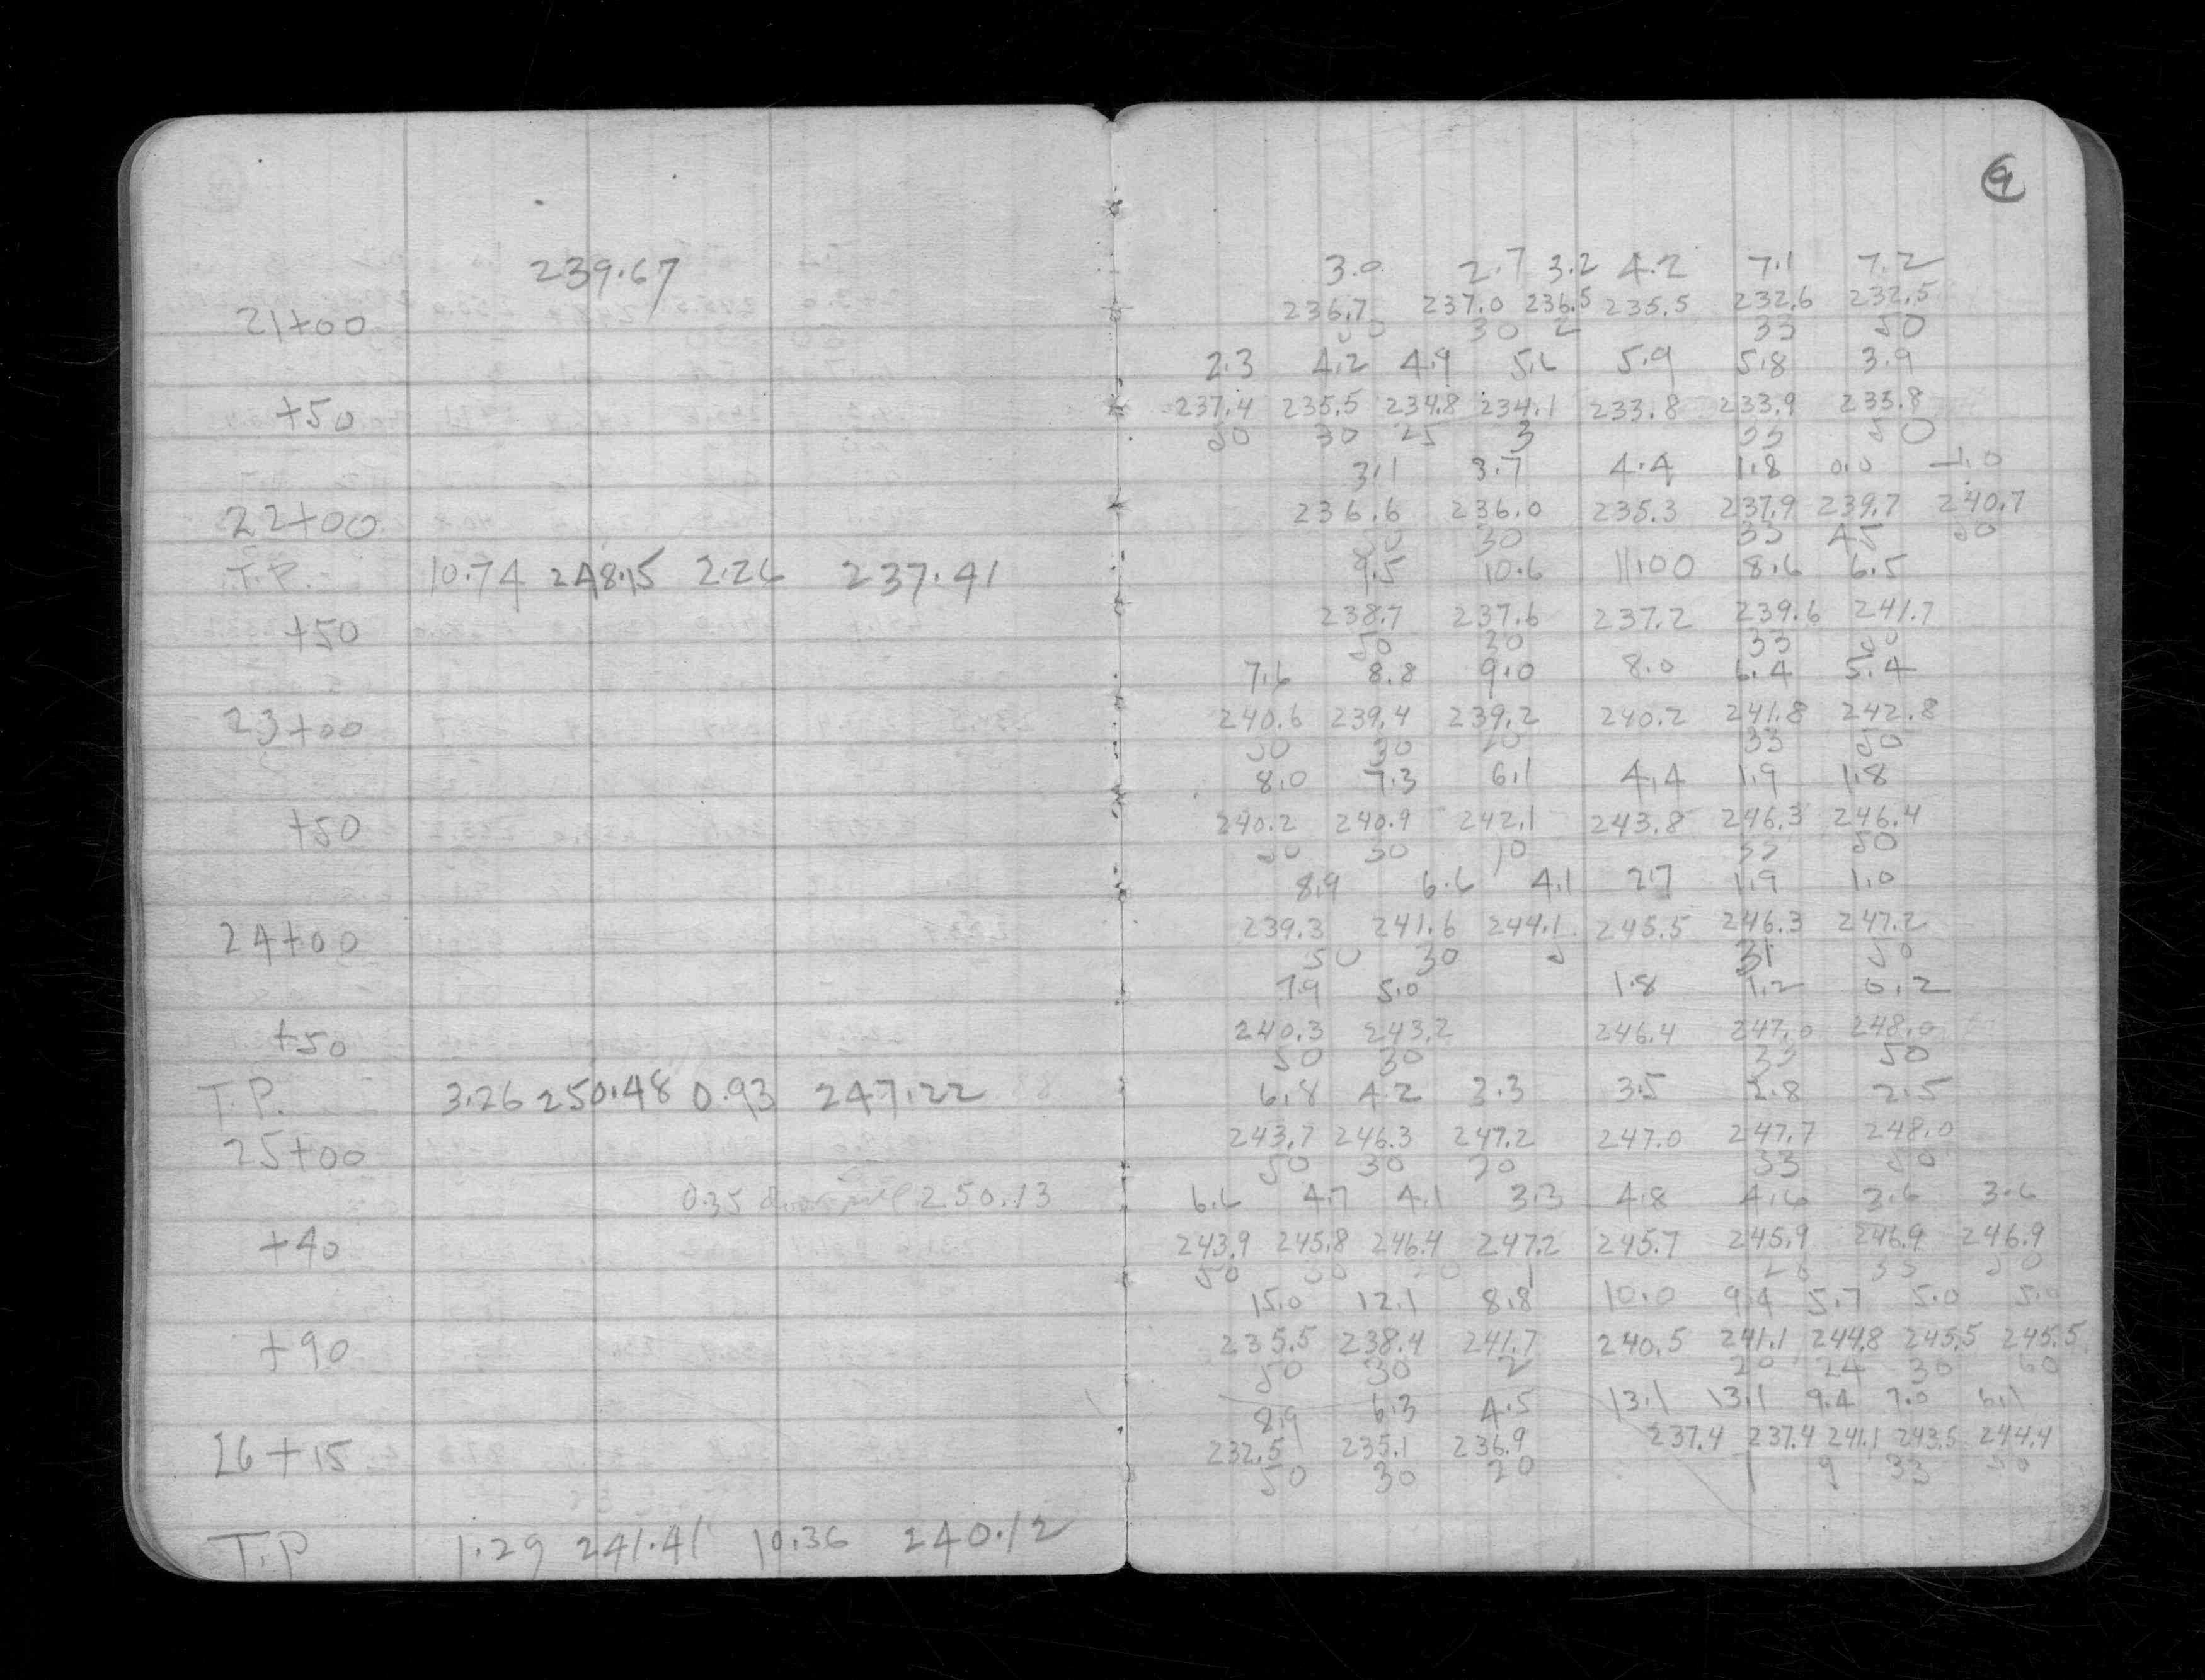 9
239.67
21+00
+50
22+00
T.P. 10.74 248.15 2.26 237.41
+50
23+00
+50
24+00
+50
T.P. 3.26 250.48 0.93 247.22
25+00
0.35 250.13
+40
+90
26+15
T.P 1.29 241.41 10.36 240.12
3.0 2.7 3.2 4.2 7.1 7.2
236.7 237.0 236.5 235.5 232.6 232.5
50 30 2 33 50
2.3 4.2 4.9 5.6 5.9 5.8 3.9
237.4 235.5 234.8 234.1 233.8 233.9 235.8
50 30 25 3 33 50
3.1 3.7 4.4 1.8 0.0 -1.0
236.6 236.0 235.3 237.9 239.7 240.7
50 30 33 45 50
9.5 10.6 11.00 8.6 6.5
238.7 237.6 237.2 239.6 241.7
50 30 33 50
7.6 8.8 9.0 8.0 6.4 5.4
240.6 239.4 239.2 240.2 241.8 242.8
50 30 20 33 50
8.0 7.3 6.1 4.4 1.9 1.8
240.2 240.9 242.1 243.8 246.3 246.4
50 30 10 33 50
8.9 6.6 4.1 2.7 1.9 1.0
239.3 241.6 244.1 245.5 246.3 247.2
50 30 5 31 50
7.9 5.0 1.8 1.2 0.2
240.3 243.2 246.4 247.0 248.0
50 30 33 50
6.8 4.2 3.3 3.5 2.8 2.5
243.7 246.3 247.2 247.0 247.7 248.0
50 30 20 33 50
6.6 4.7 4.1 3.3 4.8 4.6 3.6 3.6
243.9 245.8 246.4 247.2 245.7 245.9 246.9 246.9
50 30 20 1 28 33 50
15.0 12.1 8.8 10.0 9.4 5.7 5.0 5.0
235.5 238.4 241.7 240.5 241.1 244.8 245.5 245.5
50 30 2 20 24 30 60
8.9 6.3 4.5 13.1 13.1 9.4 7.0 6.1
232.5 235.1 236.9 237.4 237.4 241.1 243.5 244.4
50 30 20 1 9 33 50